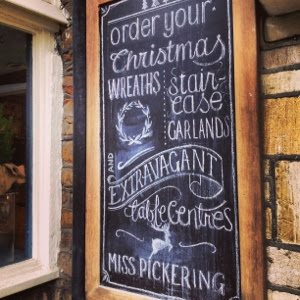 order your
Christmas
WREATHS
STAIR-
CASE
GARLANDS
AND
EXTRAVAGANT
table centres
MISS PICKERING